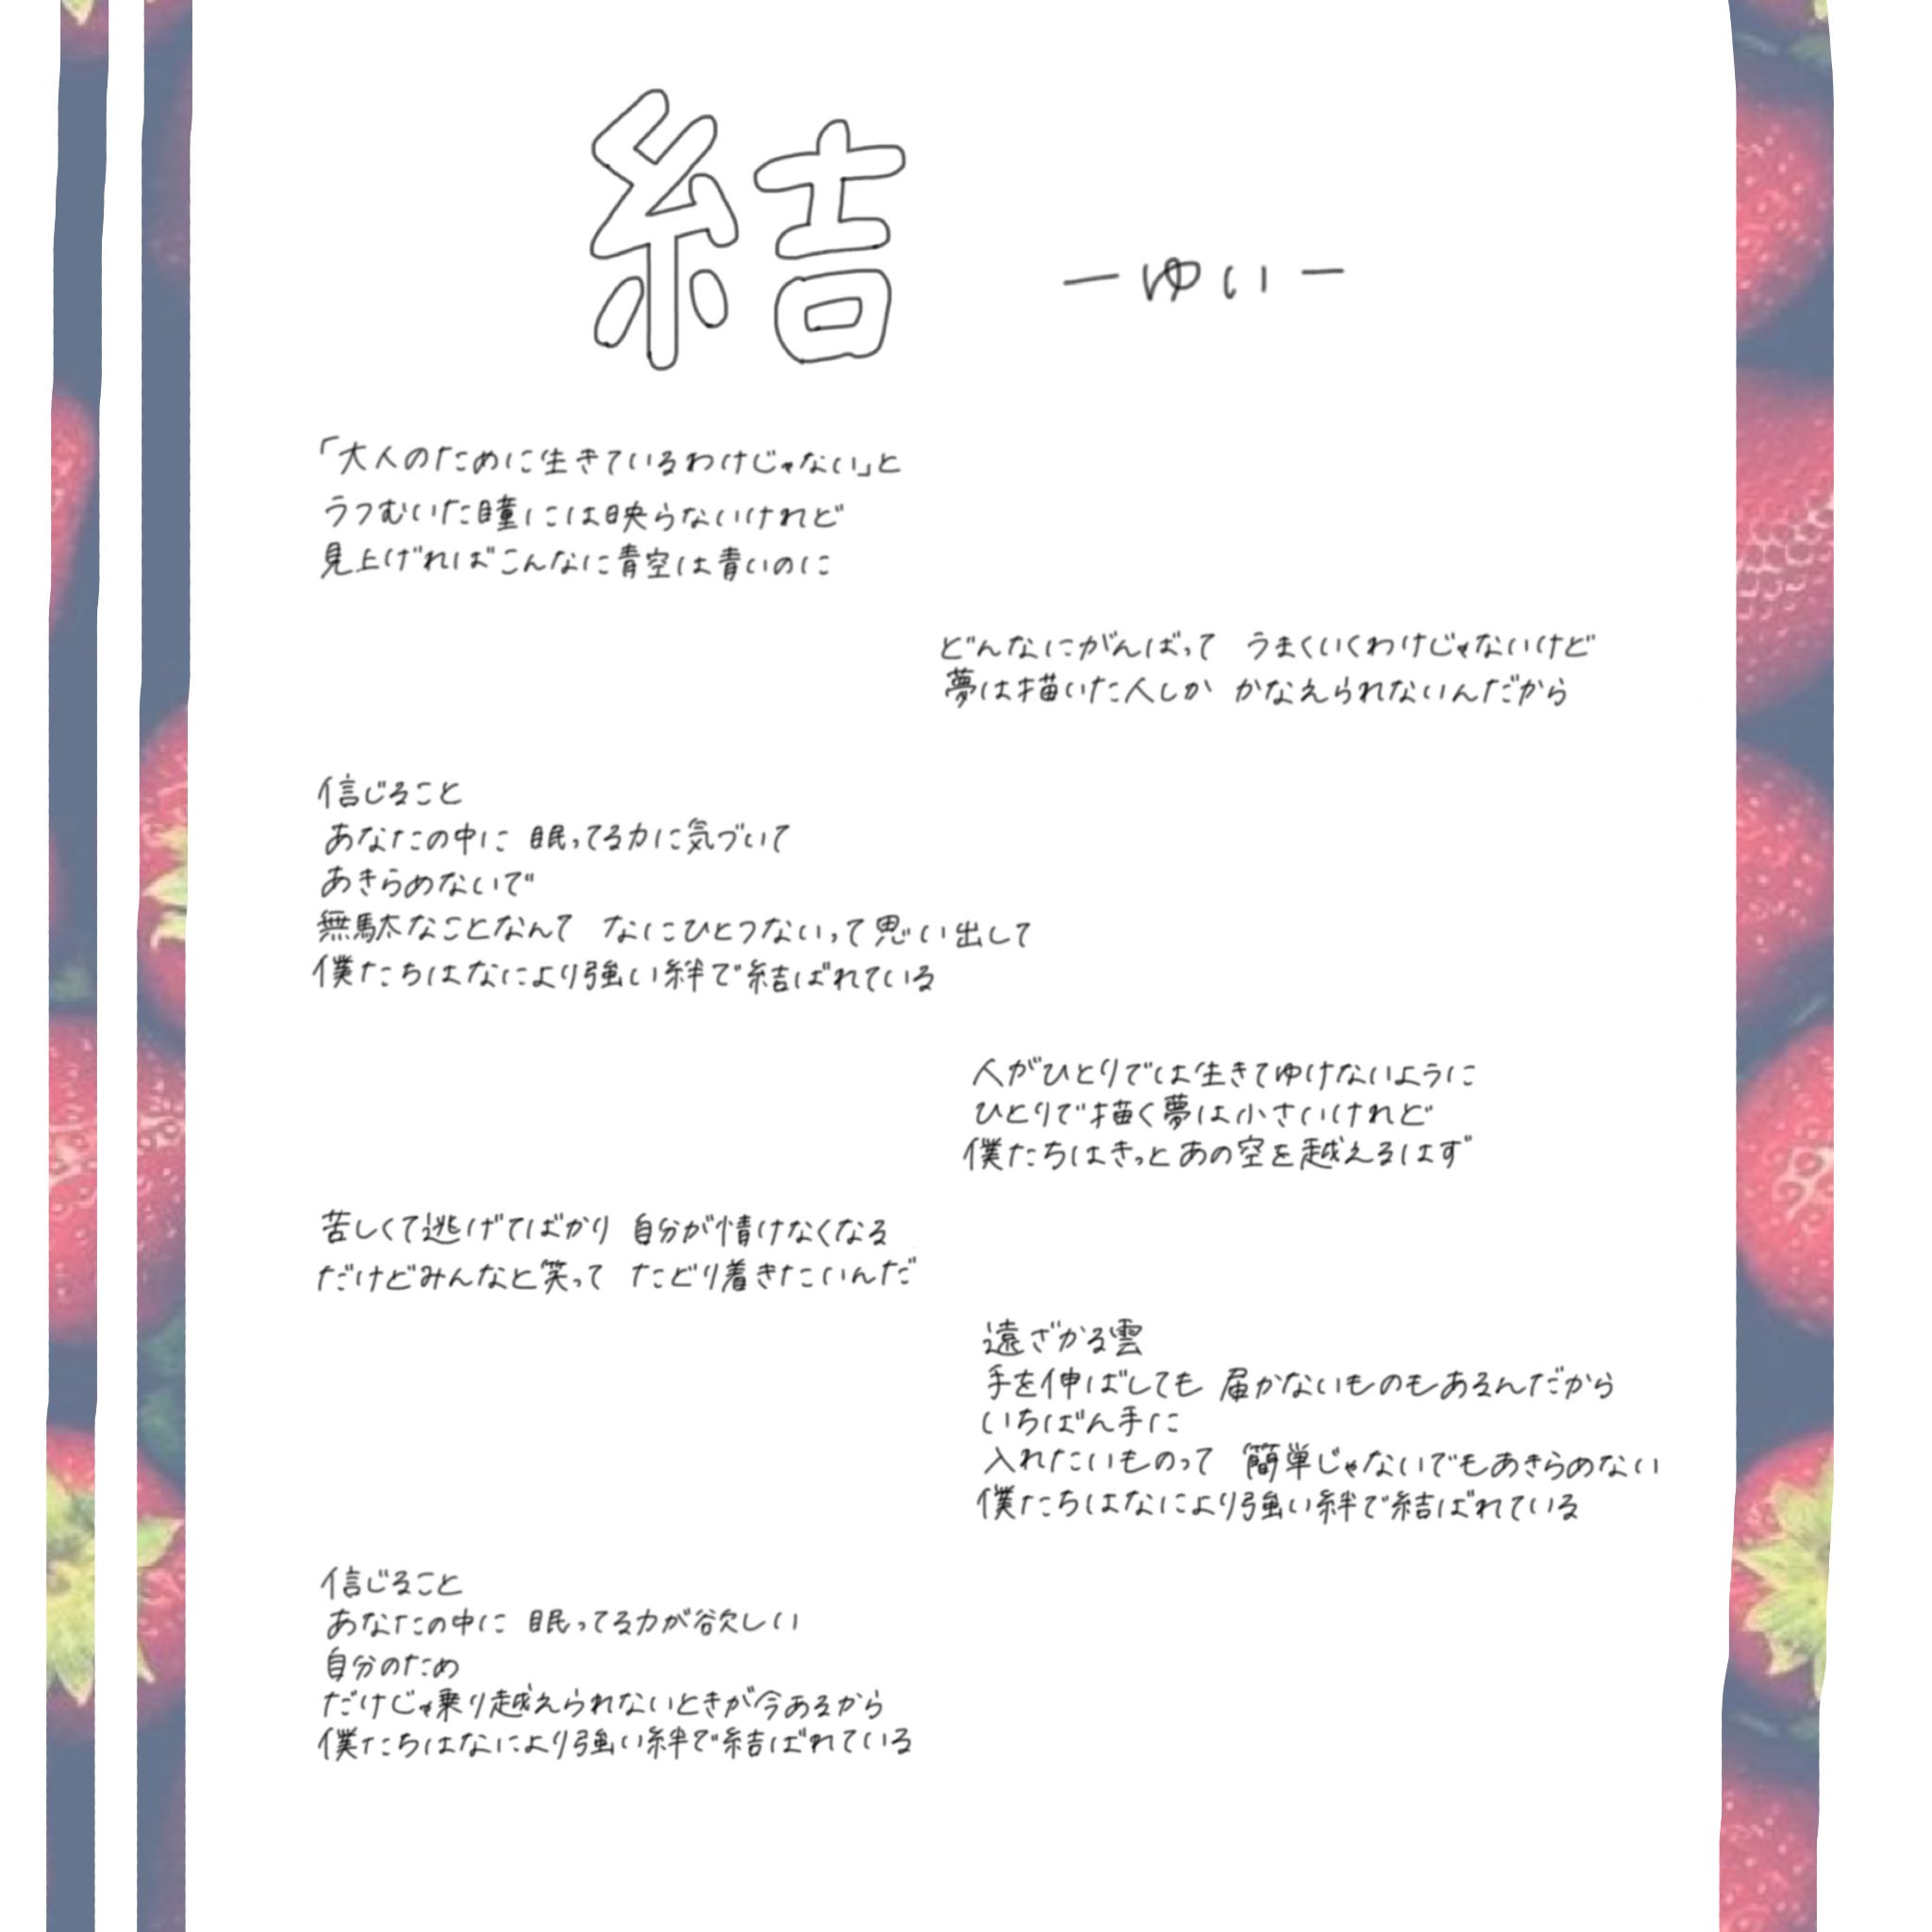 結
ーゆいー
「大人のために生きているわけじゃない」と
うつむいた瞳には映らないけれど
見上げればこんなに青空は青いのに
どんなにがんばって うまくいくわけじゃないけど
夢は描いた人しか かなえられないんだから
信じること
あなたの中に 眠ってる力に気づいて
あきらめないで
無駄なことなんて なにひとつないって思い出して
僕たちはなにより強い絆で結ばれている
人がひとりでは生きてゆけないように
ひとりで描く夢は小さいけれど
僕たちはきっとあの空を越えるはず
苦しくて逃げてばかり 自分が情けなくなる
だけどみんなと笑って たどり着きたいんだ
遠ざかる雲
手を伸ばしても 届かないものもあるんだから
いちばん手に
入れたいものって 簡単じゃないでもあきらめない
僕たちはなにより強い絆で結ばれている
信じること
あなたの中に 眠ってる力が欲しい
自分のため
だけじゃ乗り越えられないときが今あるから
僕たちはなにより強い絆で結ばれている